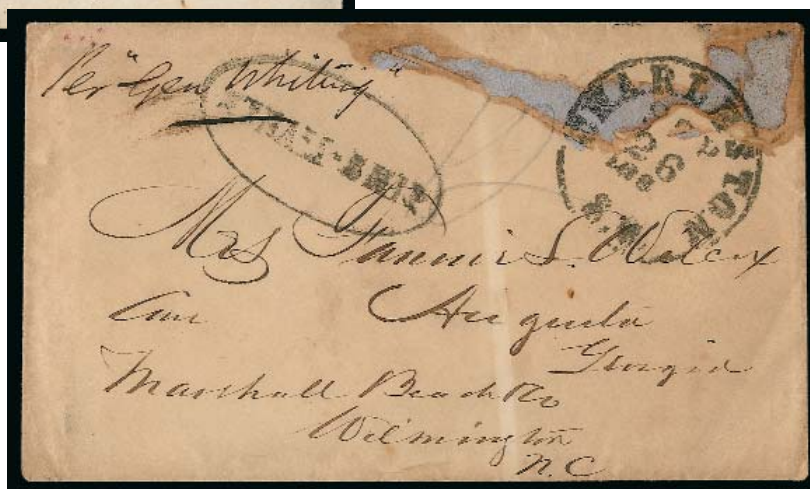 Per "Gen Whiting"
STEAM-SHIP
CHARLESTON
26
S.C.
Mrs Fannie L. Wilcox
Care Augusta
Georgia
Marshall Beach & Co
Wilmington
N.C